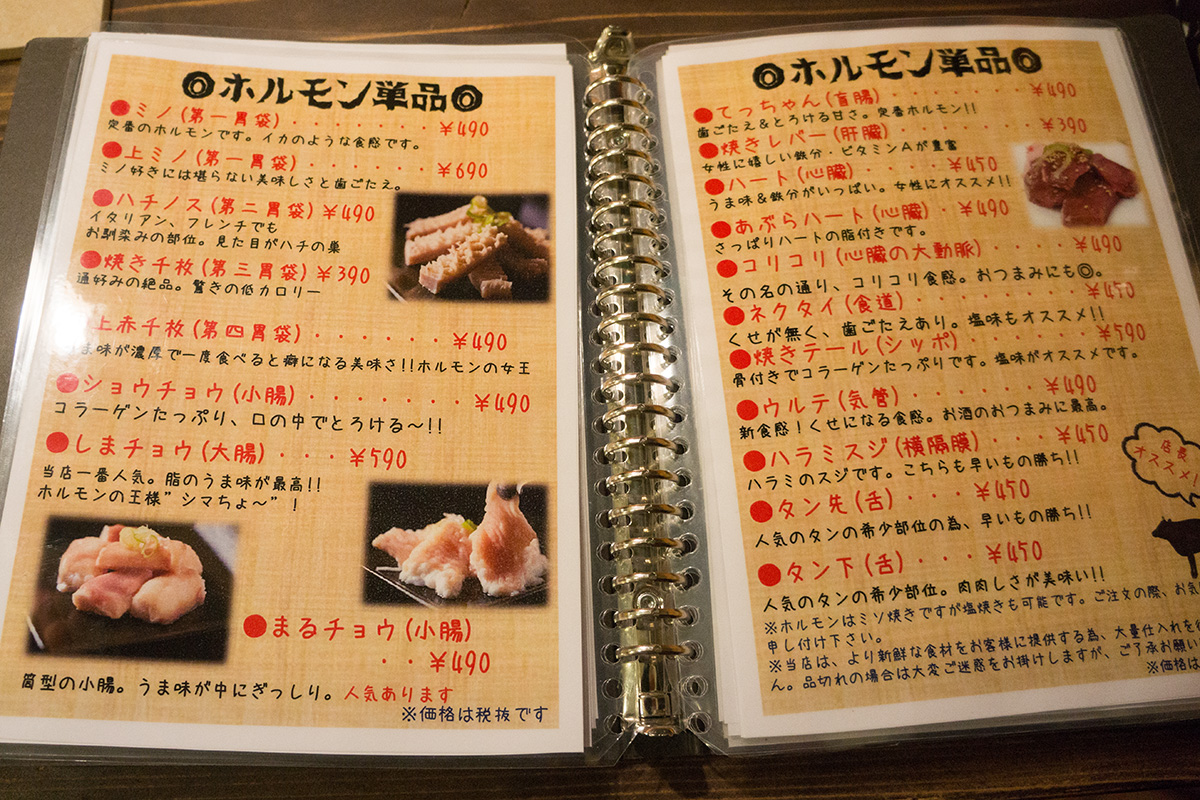 ◎ホルモン単品◎
●ミノ(第一胃袋)・・・・・・・¥490
定番のホルモンです。イカのような食感です。
●上ミノ(第一胃袋)・・・・・・¥690
ミノ好きには堪らない美味しさと歯ごたえ。
●ハチノス(第二胃袋)¥490
イタリアン、フレンチでも
お馴染みの部位。見た目がハチの巣
●焼き千枚(第三胃袋)¥390
通好みの絶品。驚きの低カロリー
上赤千枚(第四胃袋)・・・・・・¥490
うま味が濃厚で一度食べると癖になる美味さ!!ホルモンの女王
●ショウチョウ(小腸)・・・・・・・¥490
コラーゲンたっぷり、口の中でとろける〜!!
●しまチョウ(大腸)・・・¥590
当店一番人気。脂のうま味が最高!!
ホルモンの王様”シマちょ〜”!
●まるチョウ(小腸)
・・¥490
筒型の小腸。うま味が中にぎっしり。人気あります
※価格は税抜です
◎ホルモン単品◎
●てっちゃん(盲腸)・・・・・・・¥490
歯ごたえ&とろける甘さ。定番ホルモン!!
●焼きレバー(肝臓)・・・・・・・¥390
女性に嬉しい鉄分・ビタミンAが豊富
●ハート(心臓)・・・・・¥450
うま味&鉄分がいっぱい。女性にオススメ!!
●あぶらハート(心臓)・¥490
さっぱりハートの脂付きです。
●コリコリ(心臓の大動脈)・・・・・¥490
その名の通り、コリコリ食感。おつまみにも◎。
●ネクタイ(食道)・・・・・・・・¥450
くせが無く、歯ごたえあり。塩味もオススメ!!
●焼きテール(シッポ)・・・・・・¥590
骨付きでコラーゲンたっぷりです。塩味がオススメです。
●ウルテ(気管)・・・・・・¥490
新食感!くせになる食感。お酒のおつまみに最高。
●ハラミスジ(横隔膜)・・・¥450
ハラミのスジです。こちらも早いもの勝ち!!
●タン先(舌)・・・¥450
人気のタンの希少部位の為、早いもの勝ち!!
●タン下(舌)・・・¥450
人気のタンの希少部位。肉肉しさが美味い!!
店長
オススメ!
※ホルモンはミソ焼きですが塩焼きも可能です。ご注文の際、お気
申し付け下さい。
※当店は、より新鮮な食材をお客様に提供する為、大量仕入れを
ん。品切れの場合は大変ご迷惑をお掛けしますが、ご了承お願い
※価格は